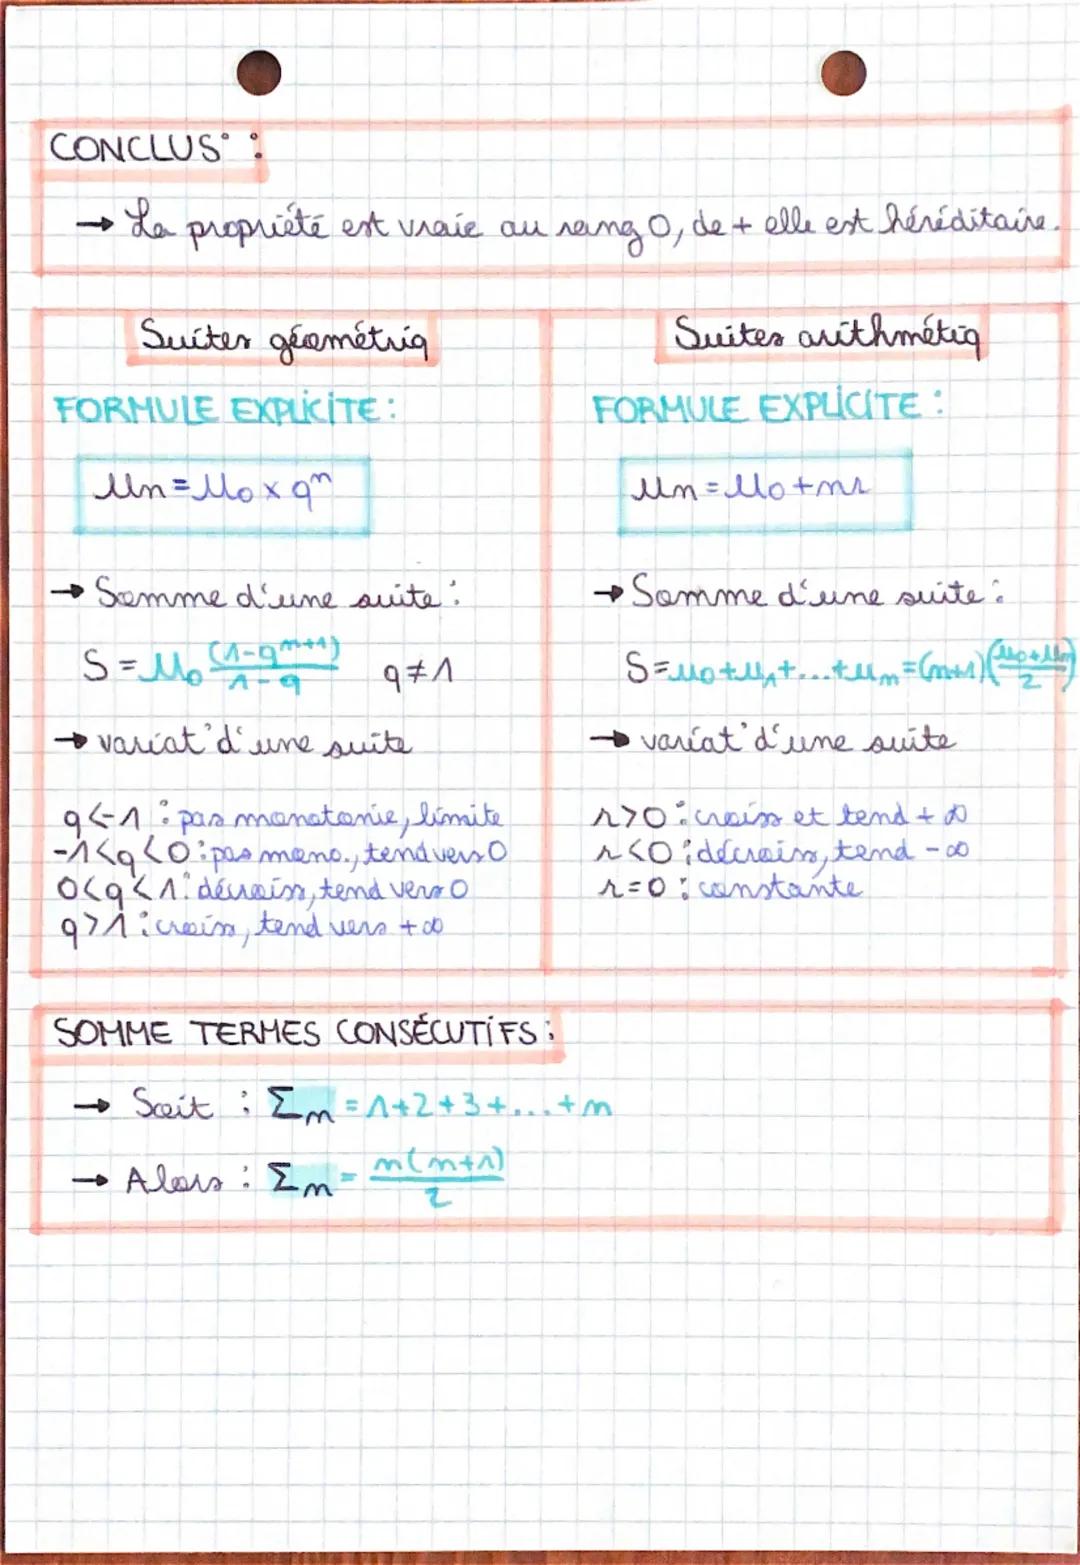 CONCLUS° :
→ La propriété est vraie au rang 0, de + elle est héréditaire.
Suites géométriq
FORMULE EXPLICITE :
Un = U0 × q^n
→ Somme d'une suite :
S = U0 (1-q^n+1)/1-q q ≠ 1
→ variat° d'une suite
q<-1 : pas monotonie, limite
-1<q<0 : pas mono., tend vers 0
0<q<1 : décroiss, tend vers 0
q>1 : croiss, tend vers +∞
Suites arithmétiq
FORMULE EXPLICITE :
Un = U0 + nr
→ Somme d'une suite :
S = u0+u1+...+un = (n+1)(u0+un/2)
→ variat° d'une suite
r>0 : croiss et tend +∞
r<0 : décroiss, tend -∞
r=0 : constante
SOMME TERMES CONSÉCUTIFS :
→ Soit : Σn = 1+2+3+...+n
→ Alors : Σn = n(n+1)/2